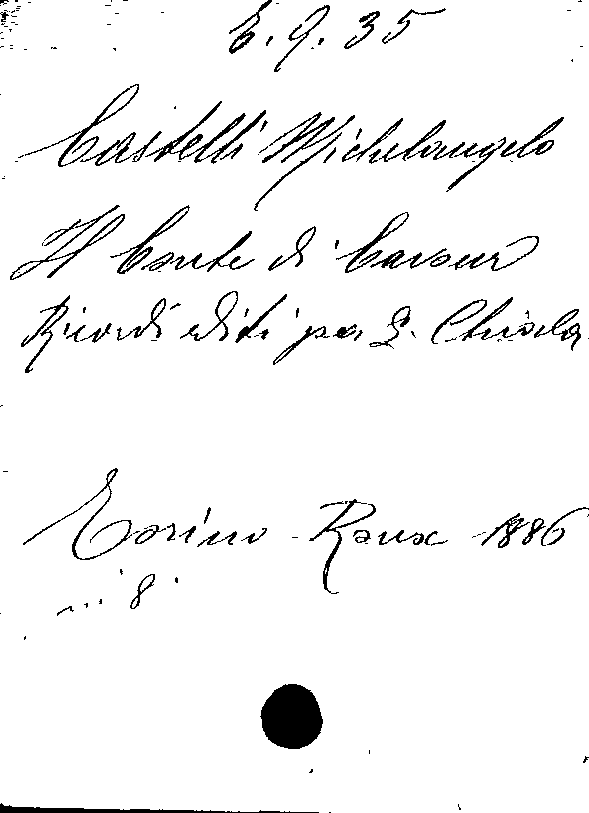 E. 9. 35
Castelli Michelangelo
Il Conte di Cavour
Ricordi editi per L. Chiala
Torino - Roux 1886
in 8.